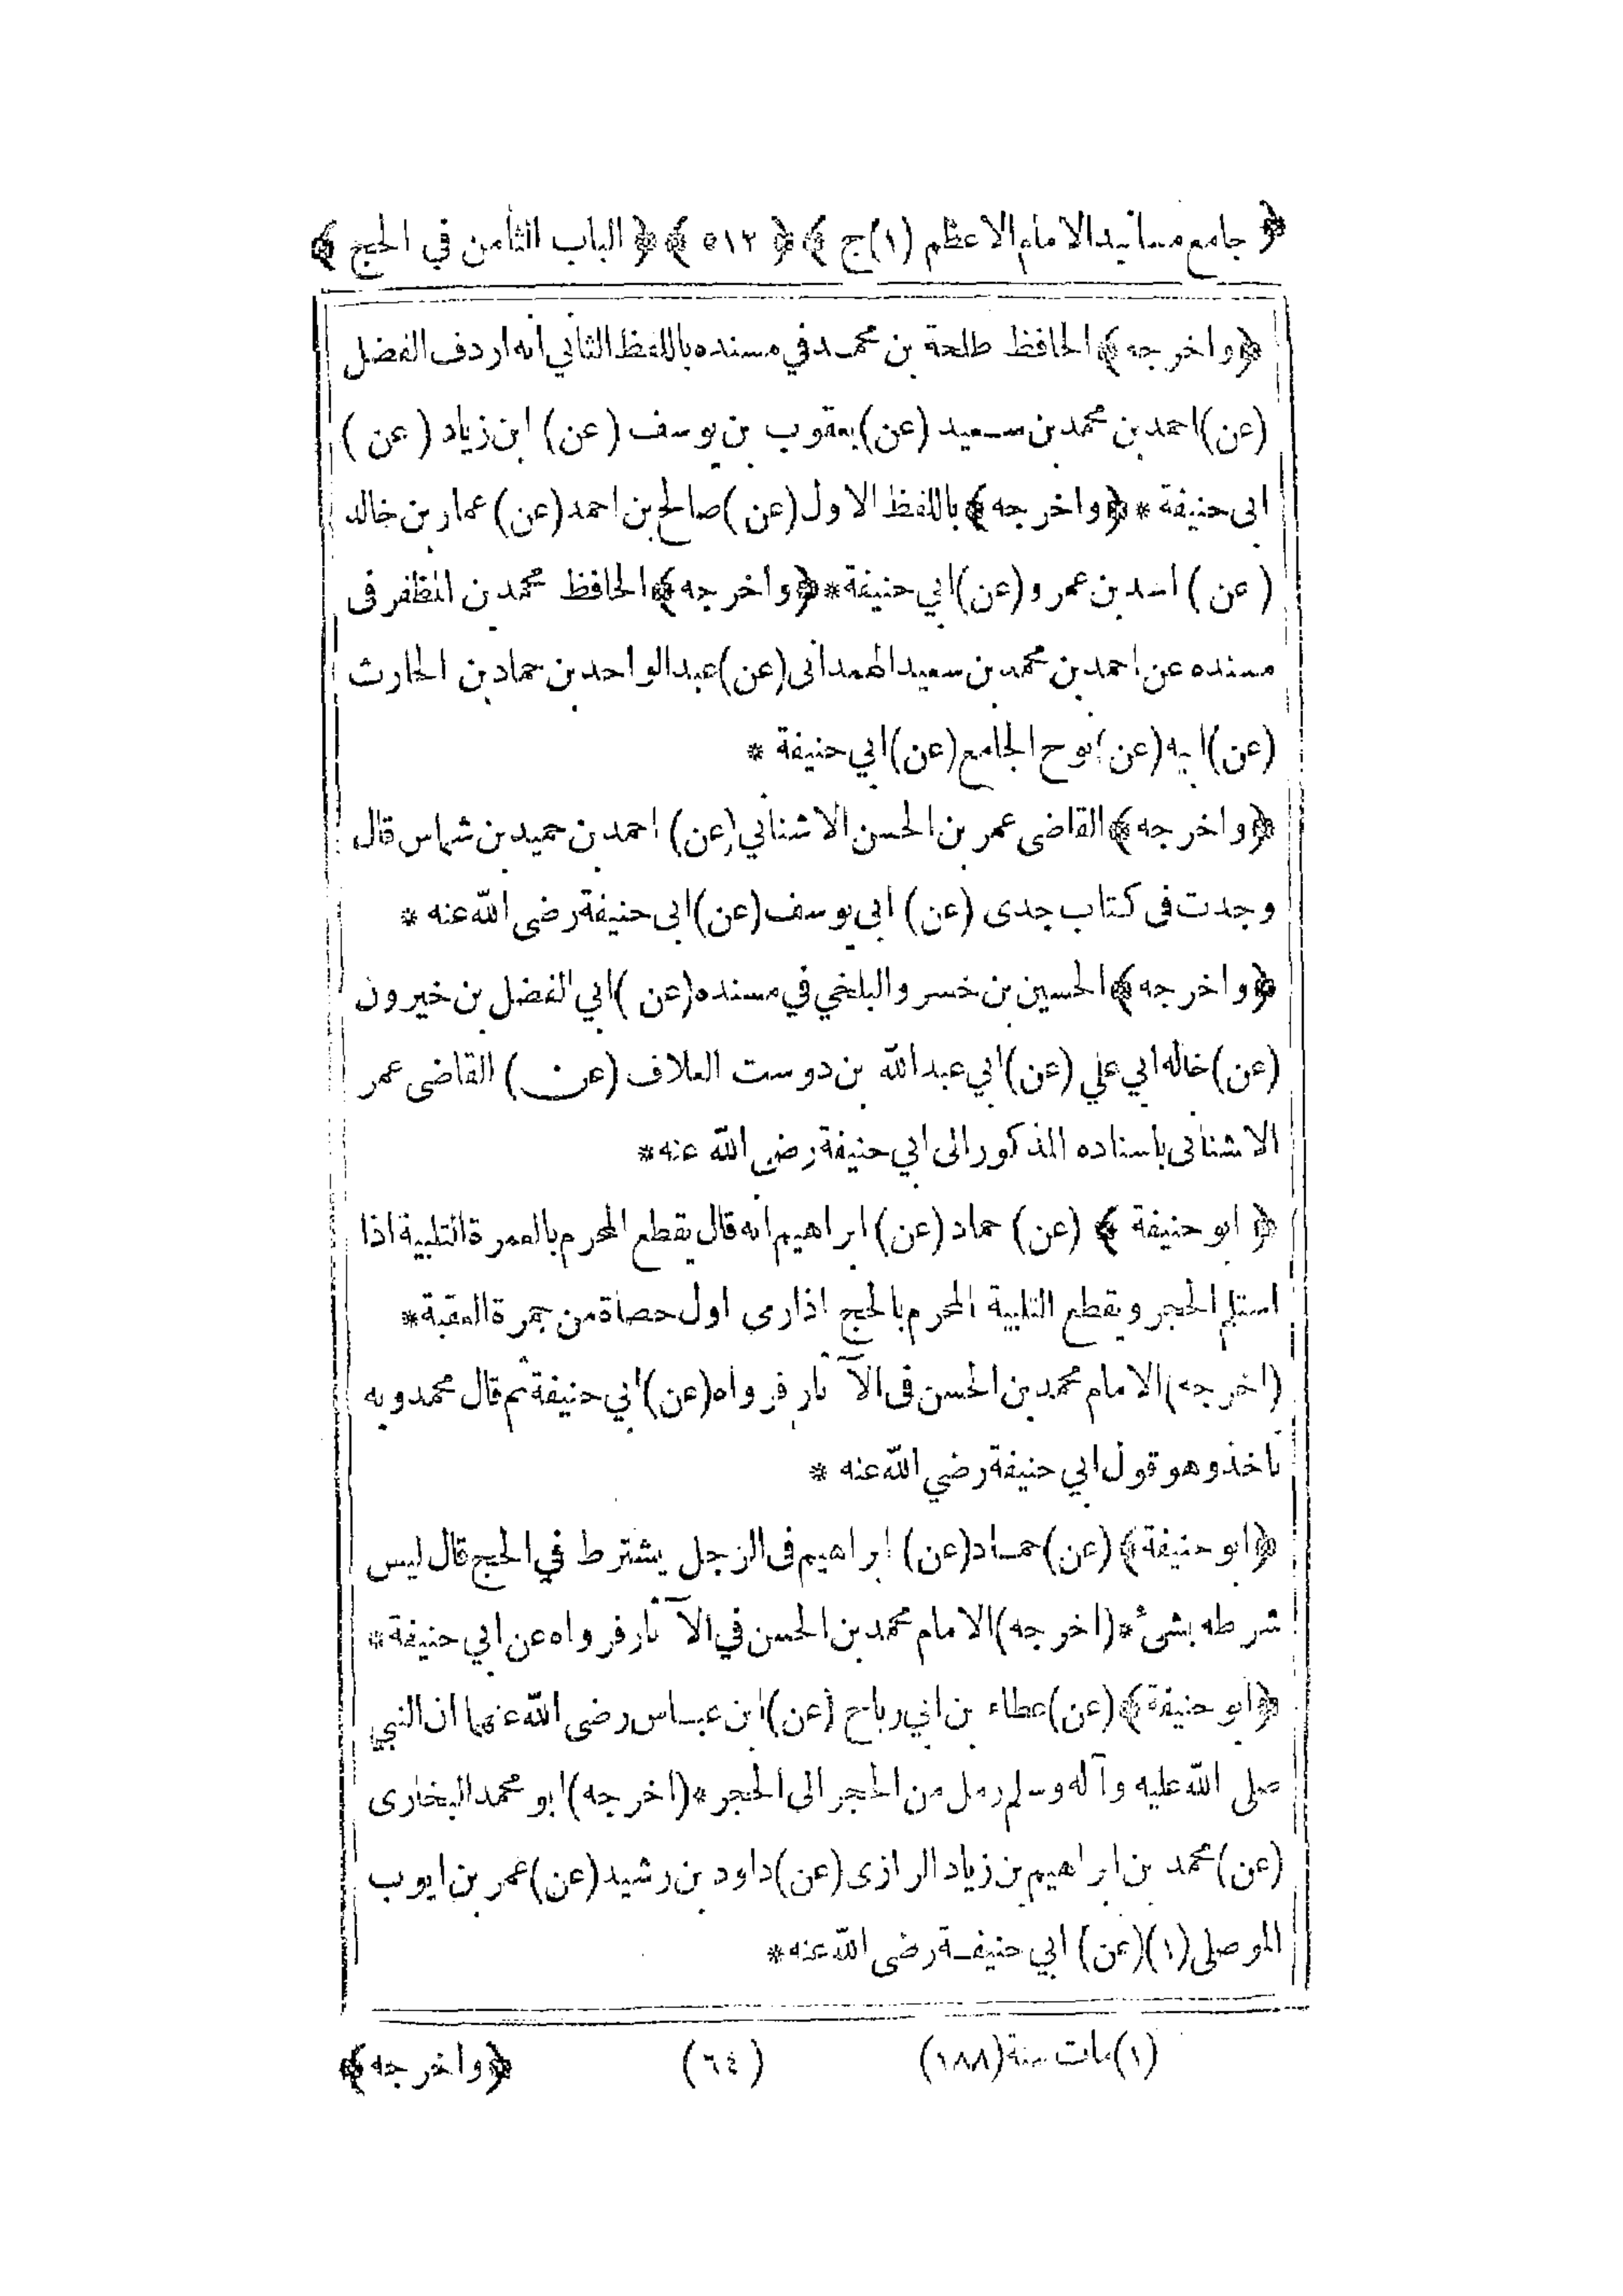 ﴿ جامع مسانيد الامام الاعظم (١)ج ﴾ ﴿ ٥١٢ ﴾ ﴿ الباب الثامن في الحج ﴾
﴿ واخرجه ﴾ الحافظ طلحة بن محمد في مسنده باللفظ الثاني انه اردف الفضل
(عن) احمد بن محمد بن سعيد (عن) يعقوب بن يوسف (عن) ابن زياد (عن)
ابى حنيفة * ﴿ واخرجه ﴾ باللفظ الاول (عن) صالح بن احمد (عن) عمار بن خالد
(عن) اسد بن عمرو (عن) ابي حنيفة * ﴿ واخرجه ﴾ الحافظ محمد بن المظفر فى
مسنده عن احمد بن محمد بن سعيد الهمدانى (عن) عبد الواحد بن حماد بن الحارث
(عن) ابيه (عن) نوح الجامع (عن) ابي حنيفة *
﴿ واخرجه ﴾ القاضى عمر بن الحسن الاشناني (عن) احمد بن حميد بن شماس قال
وجدت فى كتاب جدى (عن) ابى يوسف (عن) ابى حنيفة رضى الله عنه *
﴿ واخرجه ﴾ الحسين بن خسرو البلخي في مسنده (عن) ابي الفضل بن خيرون
(عن) خاله ابي علي (عن) ابي عبد الله بن دوست العلاف (عن) القاضى عمر
الاشنانى باسناده المذكور الى ابي حنيفة رضى الله عنه *
﴿ ابو حنيفة ﴾ (عن) حماد (عن) ابراهيم انه قال يقطع المحرم بالعمرة التلبية اذا
استلم الحجر ويقطع التلبية المحرم بالحج اذا رمى اول حصاة من جمرة العقبة *
(اخرجه) الامام محمد بن الحسن فى الآثار فرواه (عن) ابي حنيفة ثم قال محمد وبه
ناخذ وهو قول ابي حنيفة رضي الله عنه *
﴿ ابو حنيفة ﴾ (عن) حماد (عن) ابراهيم فى الرجل يشترط في الحج قال ليس
شرطه بشئ * (اخرجه) الامام محمد بن الحسن في الآثار فرواه عن ابي حنيفة *
﴿ ابو حنيفة ﴾ (عن) عطاء بن ابي رباح (عن) ابن عباس رضى الله عنهما ان النبي
صلى الله عليه وآله وسلم رمل من الحجر الى الحجر * (اخرجه) ابو محمد البخارى
(عن) محمد بن ابراهيم بن زياد الرازى (عن) داود بن رشيد (عن) عمر بن ايوب
الموصلى (١) (عن) ابي حنيفة رضى الله عنه *
(١) مات سنة (١٨٨) (٦٤) ﴿ واخرجه ﴾